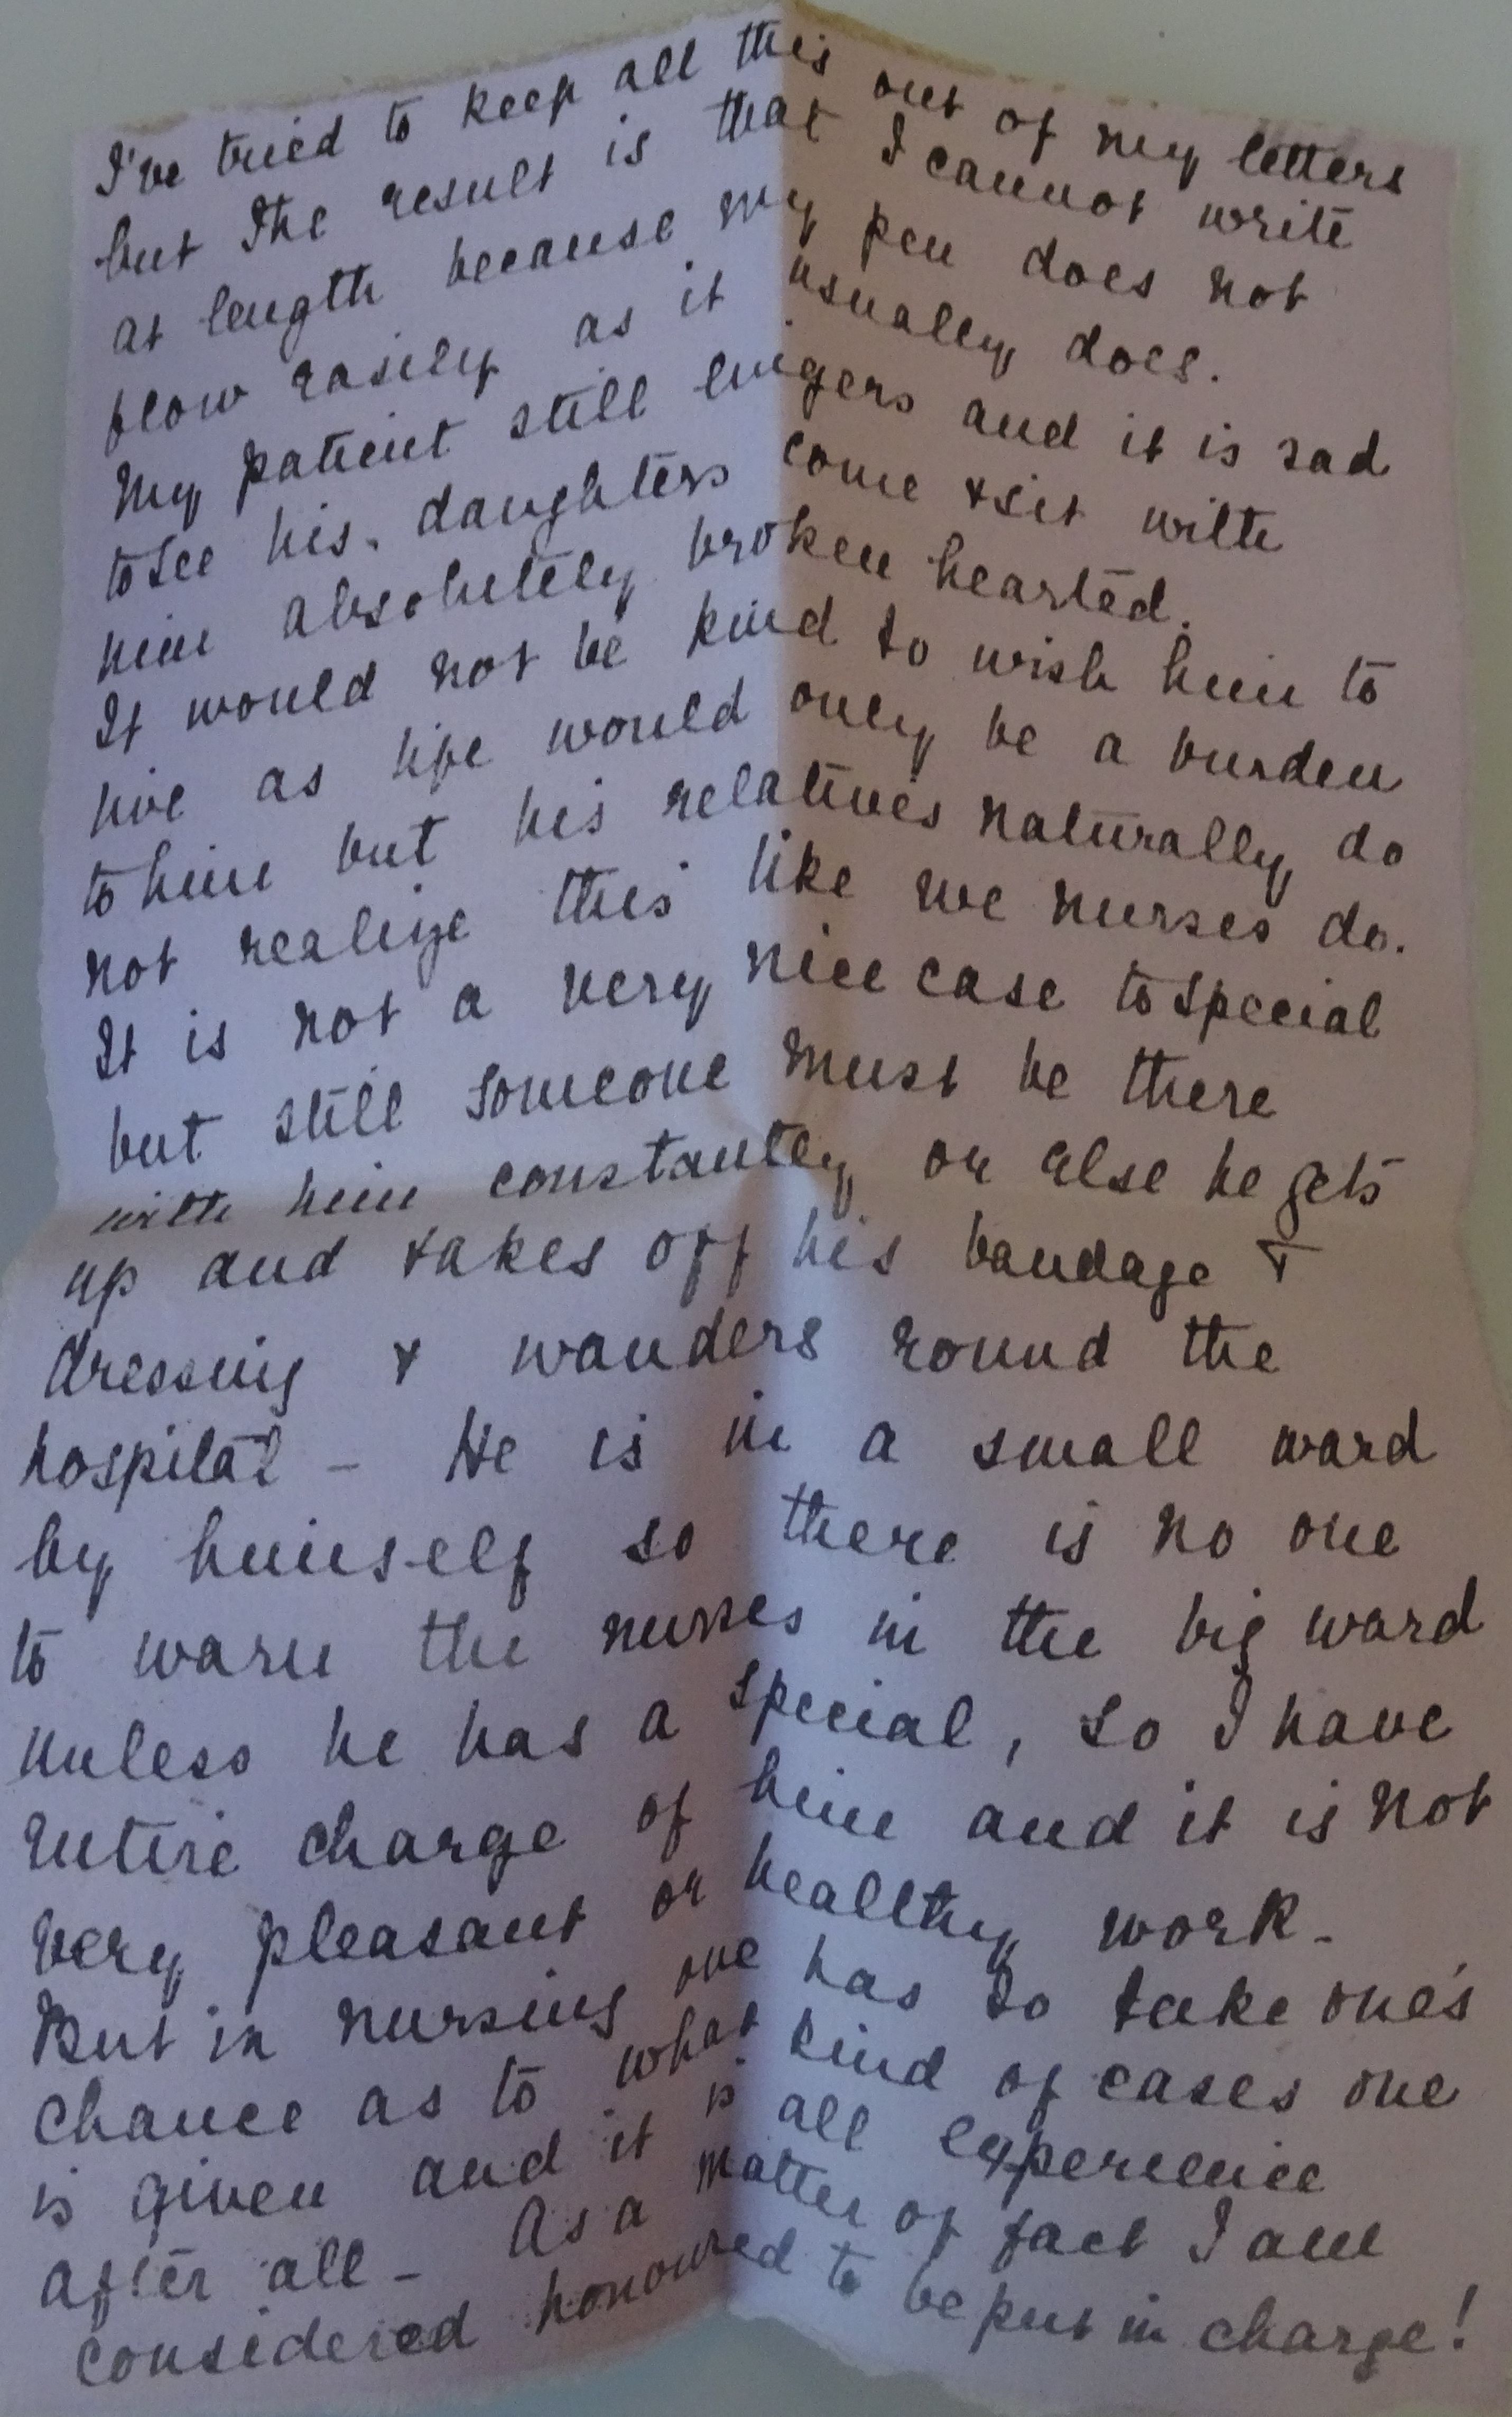 I've tried to keep all this out of my letters
but the result is that I cannot write
at length because my pen does not
flow easily as it usually does.
My patient still lingers and it is sad
to see his daughters come & sit with
him absolutely broken hearted.
It would not be kind to wish him to
live as life would only be a burden
to him but his relatives naturally do
not realize this like we nurses do.
It is not a very nice case to special
but still someone must be there
with him constantly or else he gets
up and takes off his bandage &
dressing & wanders round the
hospital - He is in a small ward
by himself so there is no one
to warn the nurses in the big ward
unless he has a special, so I have
entire charge of him and it is not
very pleasant or healthy work -
But in nursing one has to take one's
chance as to what kind of cases one
is given and it is all experience
after all - As a matter of fact I am
considered honoured to be put in charge!